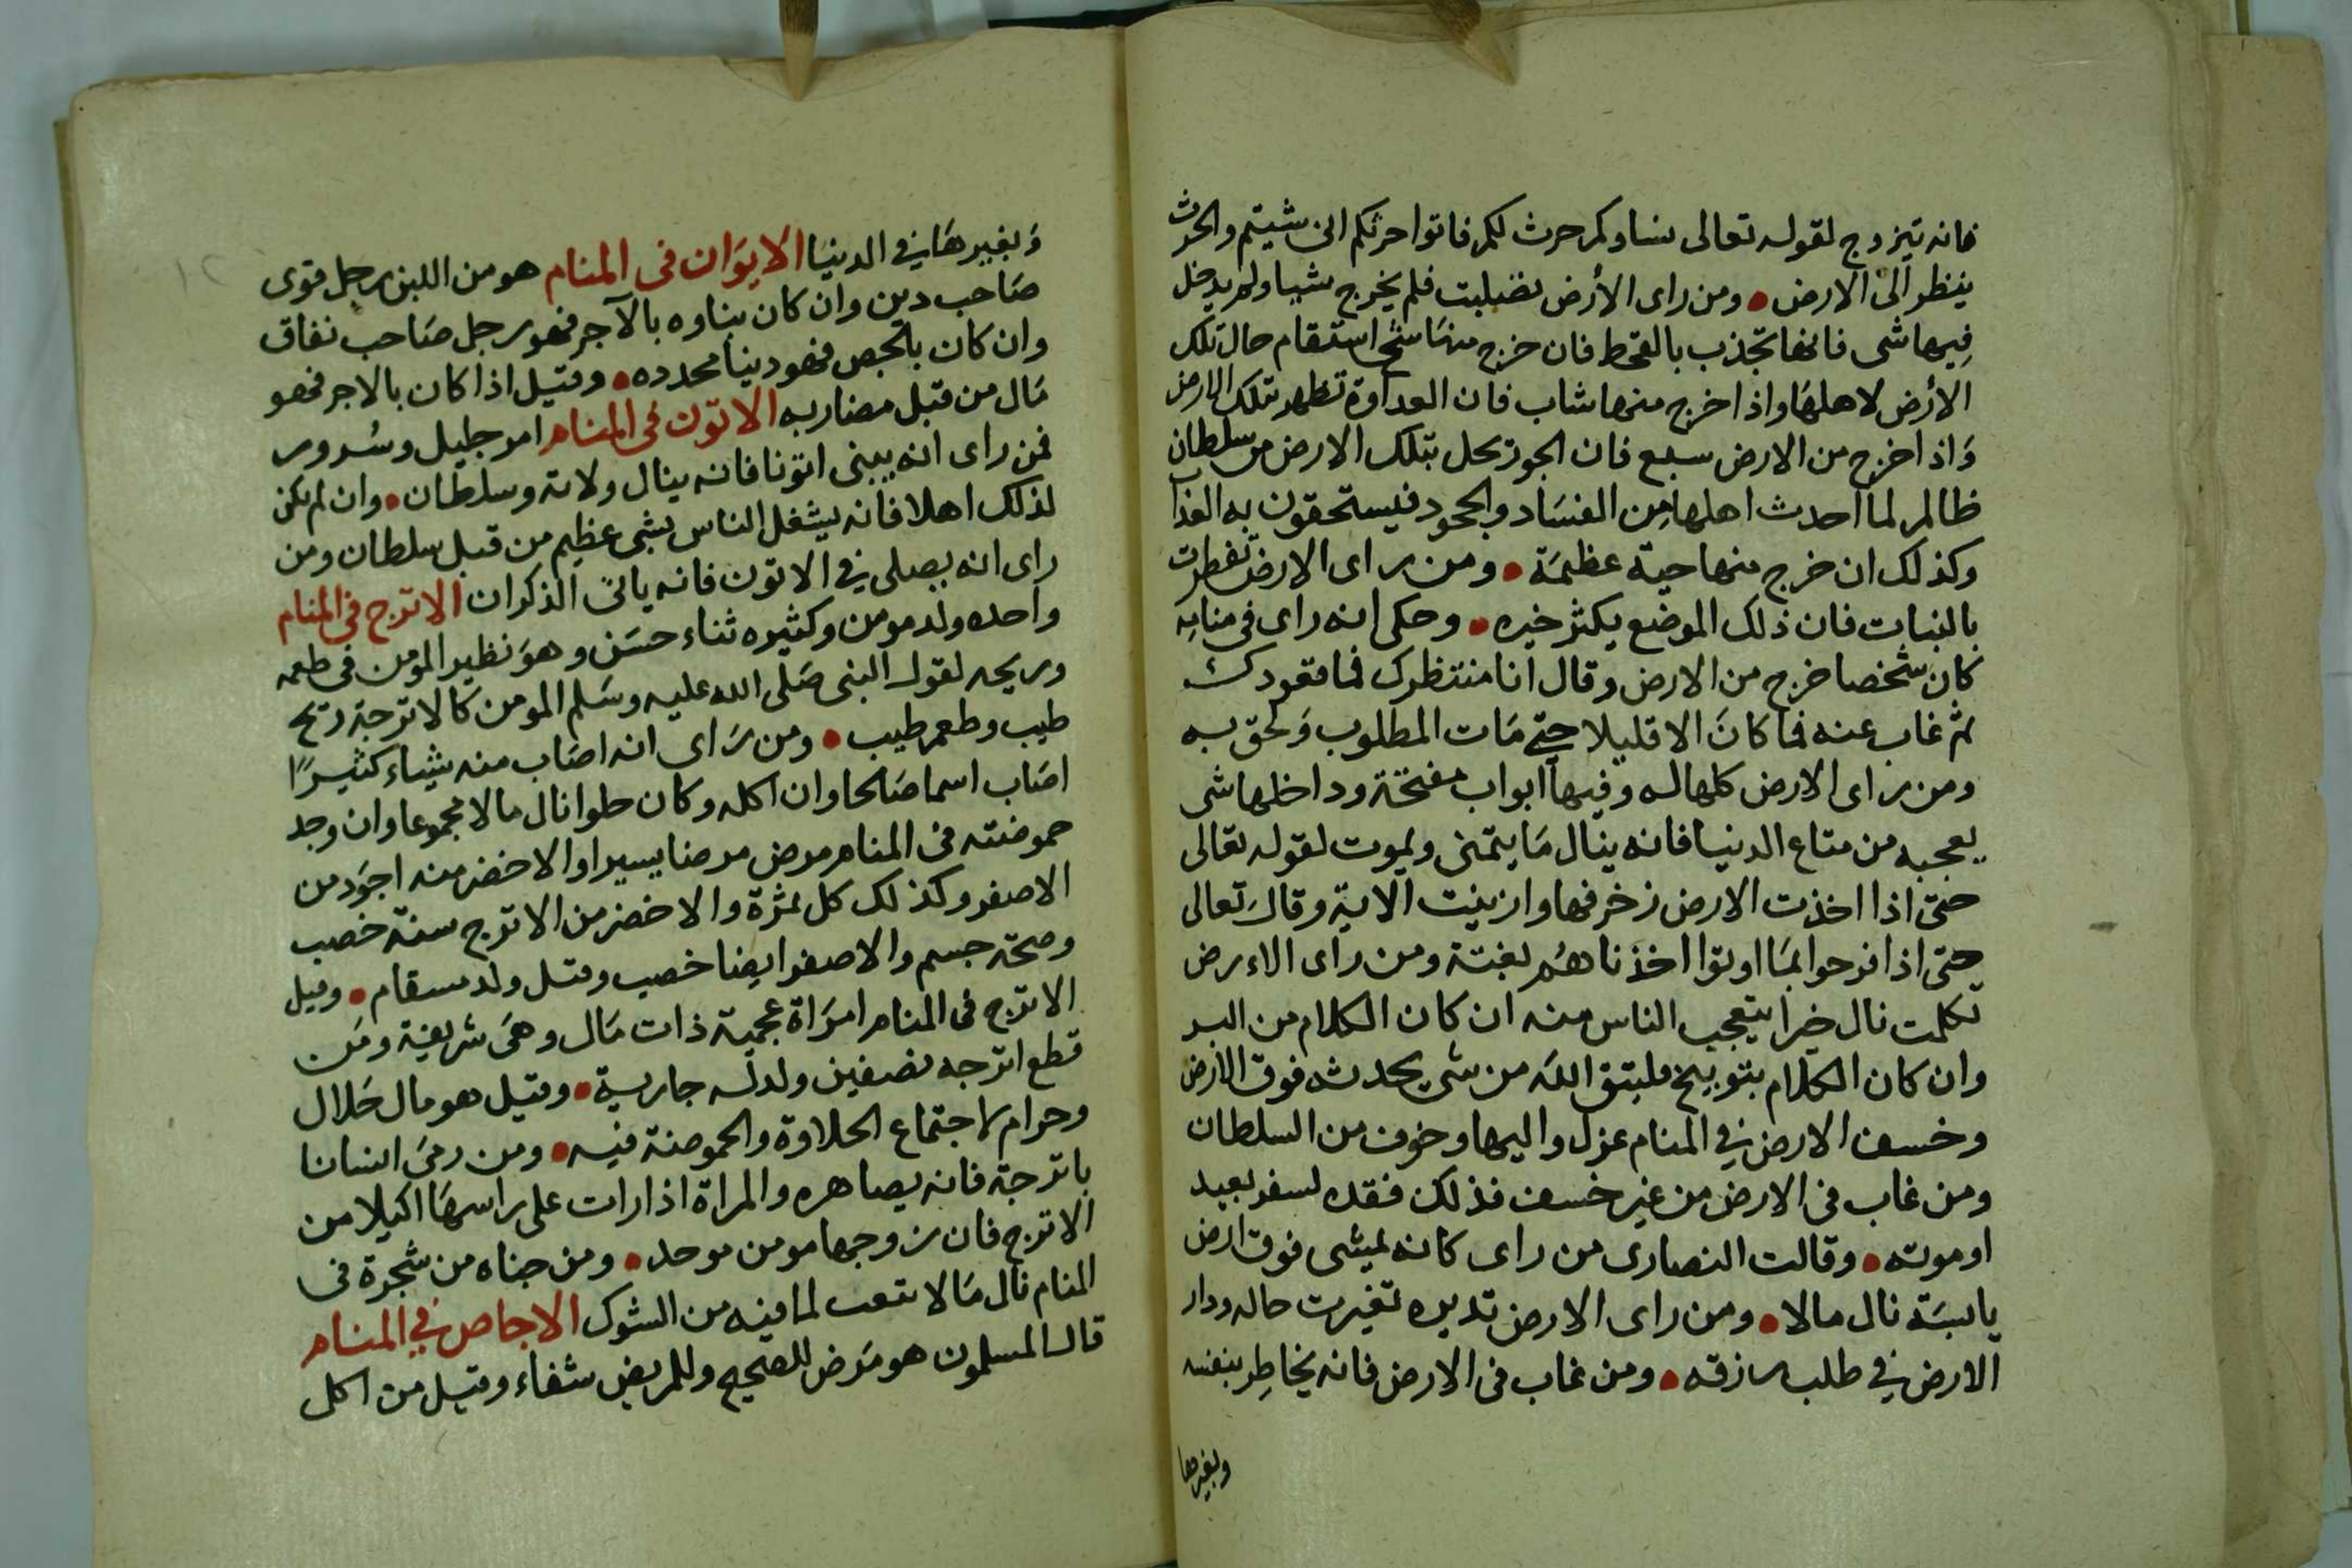 فانه تيزوج لقوله تعالى نساوكم حرث لكم فاتوا حرثكم انى شيتم والحرث
ينظر الى الارض • ومن راى الأرض نضبلبت فلم يخرج شيا ولم يدخل
فيها شى فانها تجذب بالقحط فان خرج منها شيخ استقام حال تلك
الأرض لاهلها واذا خرج منها شاب فان العداوة تظهر بتلك الارض
واذا خرج من الارض سبع فان الجور يحل بتلك الارض من سلطان
ظالم لما احدث اهلها من الفساد والجحود فيستحقون به العذاب
وكذلك ان خرج منها حية عظيمة • ومن راى الارض تفطرت
بالنبات فان ذلك الموضع يكثر خيره • وحكى انه راى فى منامه
كان شخصا خرج من الارض وقال انا منتظرك فما قعودك
ثم غاب عنه فما كان الا قليلا حتى مات المطلوب ولحق به
ومن راى الارض كلها له وفيها ابواب مفتحة وداخلها شى
يعجبه من متاع الدنيا فانه ينال ما يتمنى ويموت لقوله تعالى
حتى اذا اخذت الارض زخرفها وازينت الاية وقال تعالى
حتى اذا فرحوا بما اوتوا اخذناهم بغتة ومن راى الاءرض
تكلمت نال خيرا يتعجب الناس منه ان كان الكلام من البر
وان كان الكلام بتوبيخ فليتق الله من شى يحدثه فوق الارض
وخسف الارض في المنام عزل واليها وخوف من السلطان
ومن غاب فى الارض من غير خسف فذلك فقده لسفر بعيد
او موته • وقالت النصارى من راى كانه يمشى فوق ارض
يابسة نال مالا • ومن راى الارض تديره تغيرت حاله ودار
الارض في طلب رزقه • ومن غاب فى الارض فانه يخاطر بنفسه
وبغيرها
١٢
وبغيرها في الدنيا الايوان فى المنام هو من اللبن رجل قوى
صاحب دين وان كان بناوه بالآجر فهو رجل صاحب نفاق
وان كان بالجص فهو دينا محدده • وقيل اذا كان بالاجر فهو
مال من قبل مضاربه الاتون فى المنام امر جليل وسرور
فمن راى انه يبنى اتونا فانه ينال ولاته وسلطان • وان لم يكن
لذلك اهلا فانه يشغل الناس بشى عظيم من قبل سلطان ومن
راى انه يصلى في الاتون فانه ياتى الذكران الاترج فى المنام
واحده ولد مومن وكثيره ثناء حسن وهو نظير المومن فى طعمه
وريحه لقول النبى صلى الله عليه وسلم المومن كالاترجة ريح
طيب وطعم طيب • ومن راى انه اصاب منه شياء كثيرًا
اصاب اسما صالحا وان اكله وكان حلوا نال مالا مجموعا وان وجد
حموضته فى المنام مرض مرضا يسيرا والاخضر منه اجود من
الاصفر وكذلك كل ثمرة والاخضر من الاترج سنة خصب
وصحة جسم والاصفر ايضا خصب وقيل ولد مسقام • وقيل
الاترج فى المنام امراة عجمية ذات مال وهى شريفة ومن
قطع اترجه نصفين ولد له جارية • وقيل هو مال حلال
وحرام لاجتماع الحلاوة والحموضة فيه • ومن رمى انسانا
باترجة فانه يصاهره والمراة اذا رات على راسها اكيلا من
الاترج فان زوجها مومن موحد • ومن جناه من شجرة فى
المنام نال مالا بتعب لما فيه من الشوك الاجاص في المنام
قال المسلمون هو مرض للصحيح وللمريض شفاء وقيل من اكل